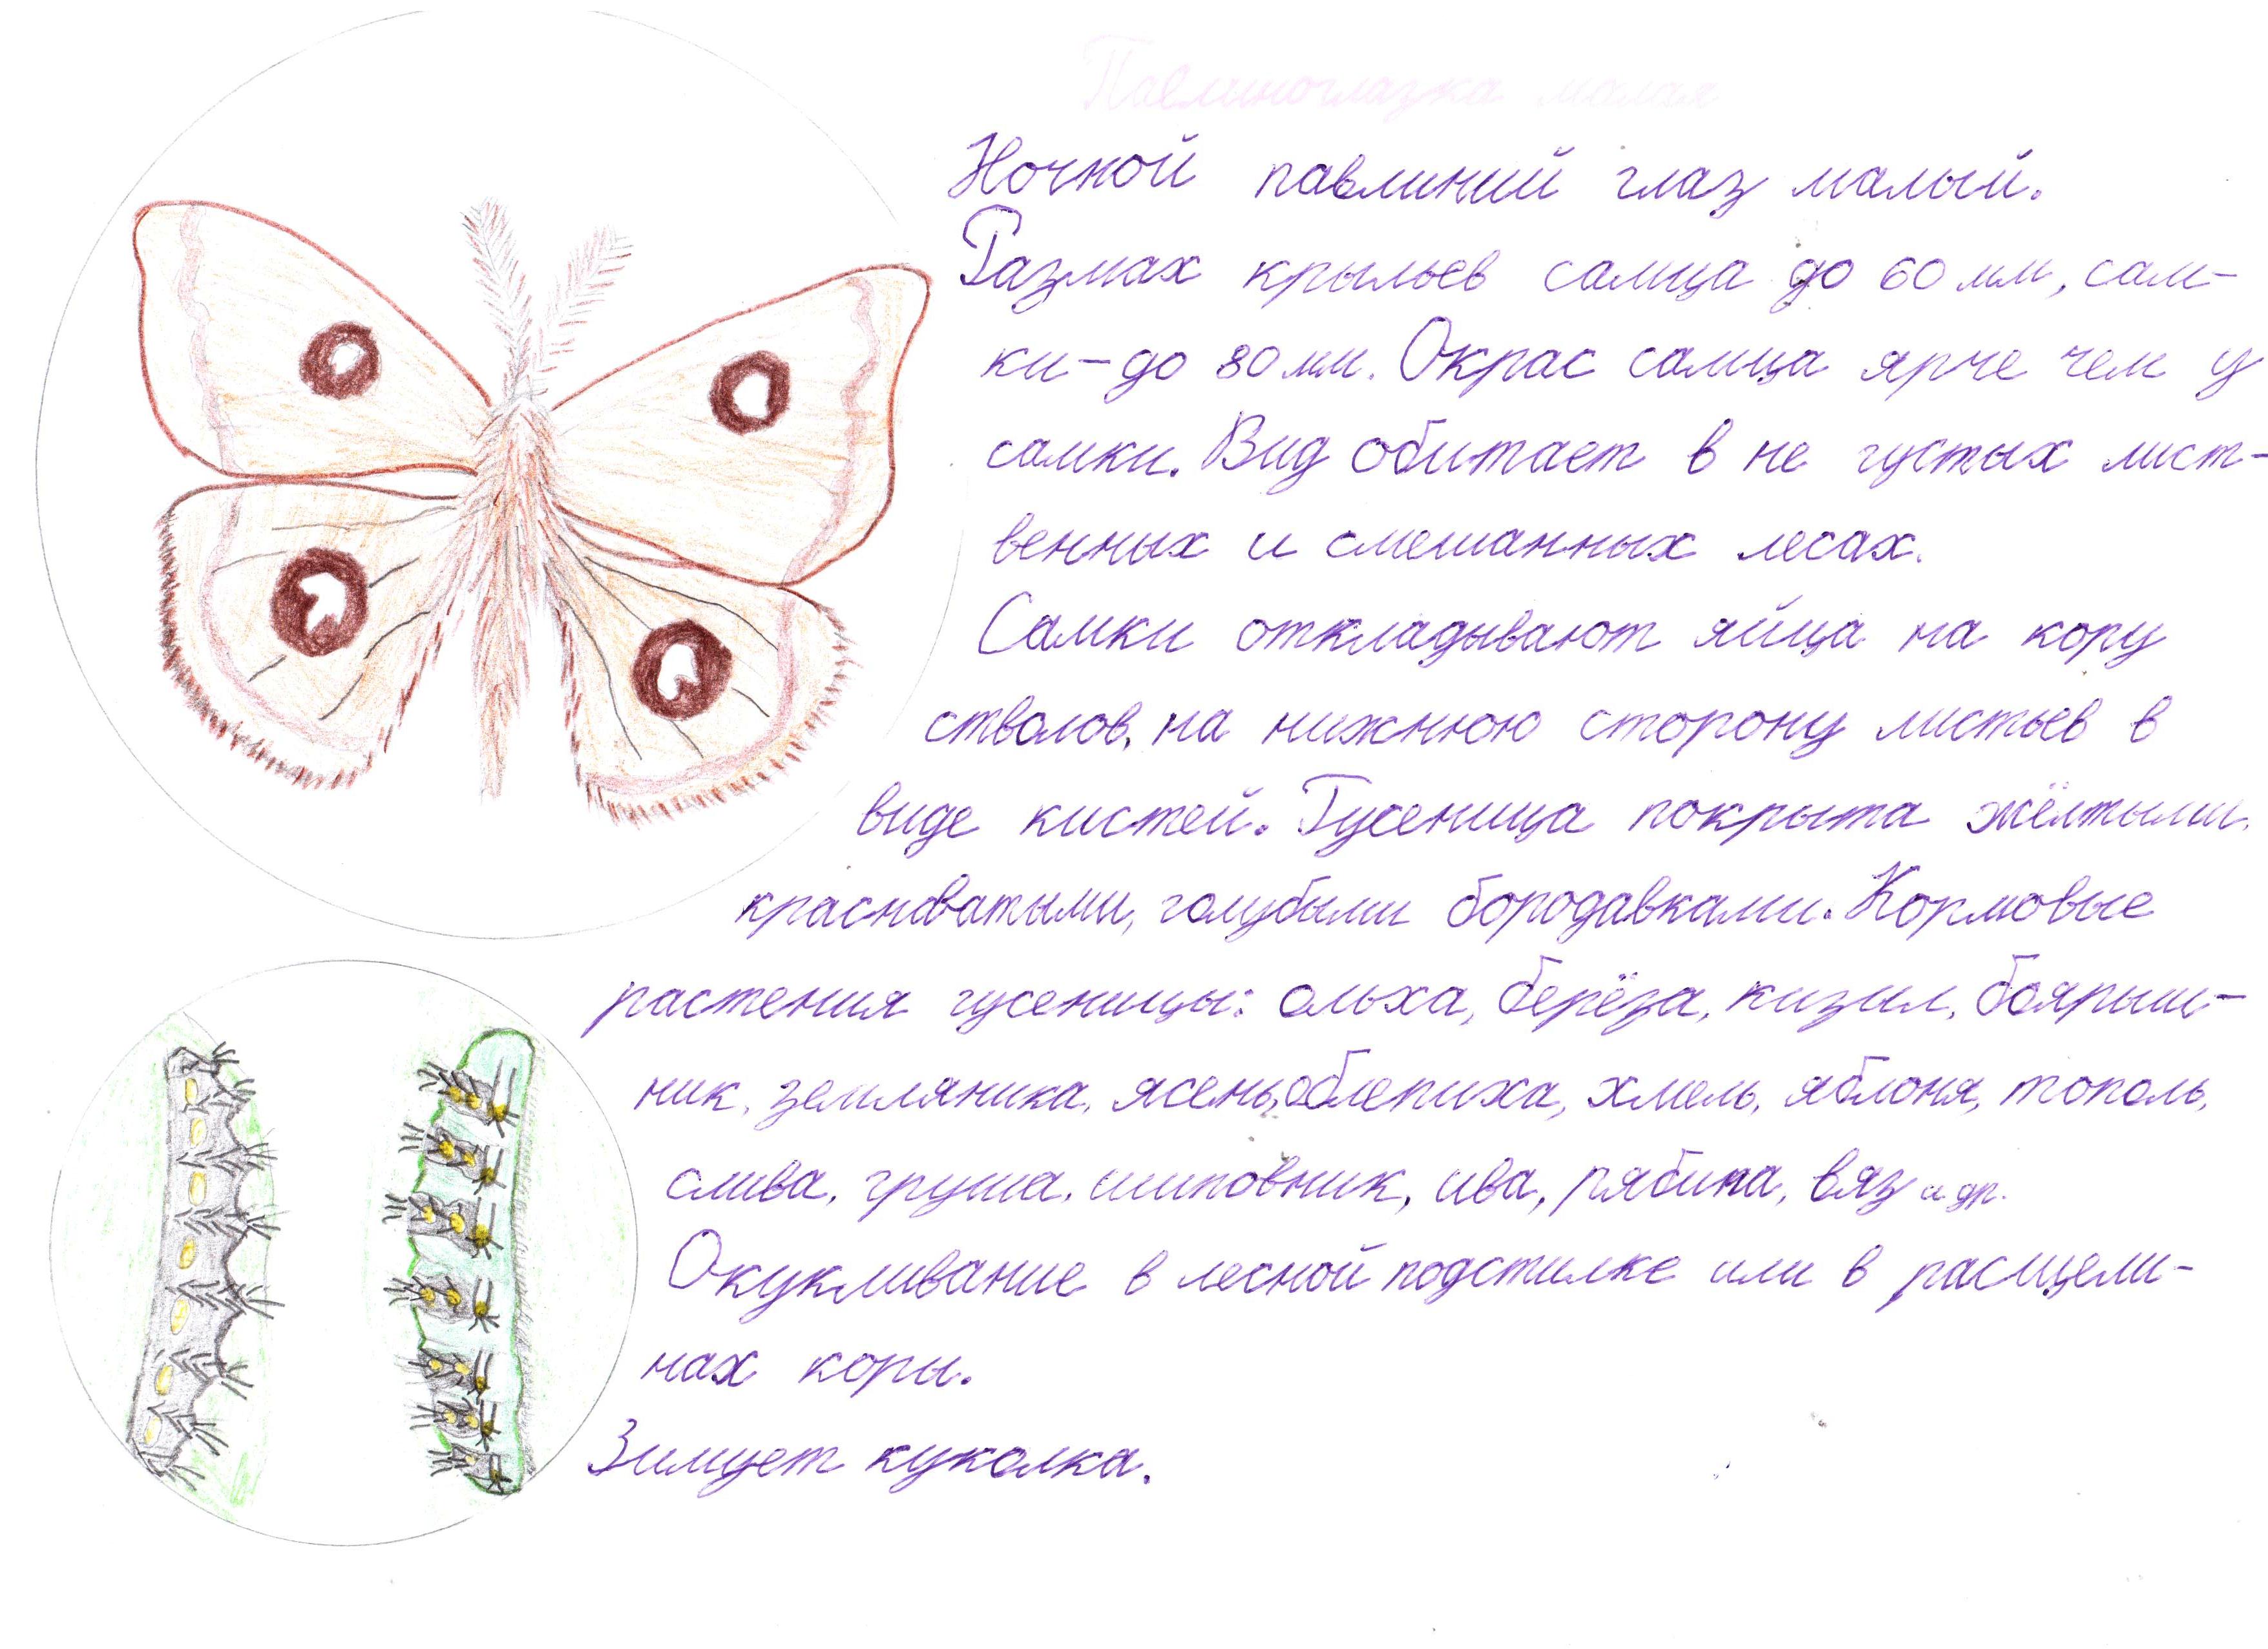 Павлиноглазка малая
Ночной павлиний глаз малый.
Размах крыльев самца до 60 мм, сам-
ки-до 80 мм. Окрас самца ярче чем у
самки. Вид обитает в не густых лист-
венных и смешанных лесах.
Самки откладывают яйца на кору
стволов, на нижнюю сторону листьев в
виде кистей. Гусеница покрыта жёлтыми,
красноватыми, голубыми бородавками. Кормовые
растения гусеницы: ольха, берёза, кизил, боярыш-
ник, земляника, ясень, облепиха, хмель, яблоня, тополь,
слива, груша, шиповник, ива, рябина, вяз и др.
Окукливание в лесной подстилке или в расщели-
нах коры.
Зимует куколка.